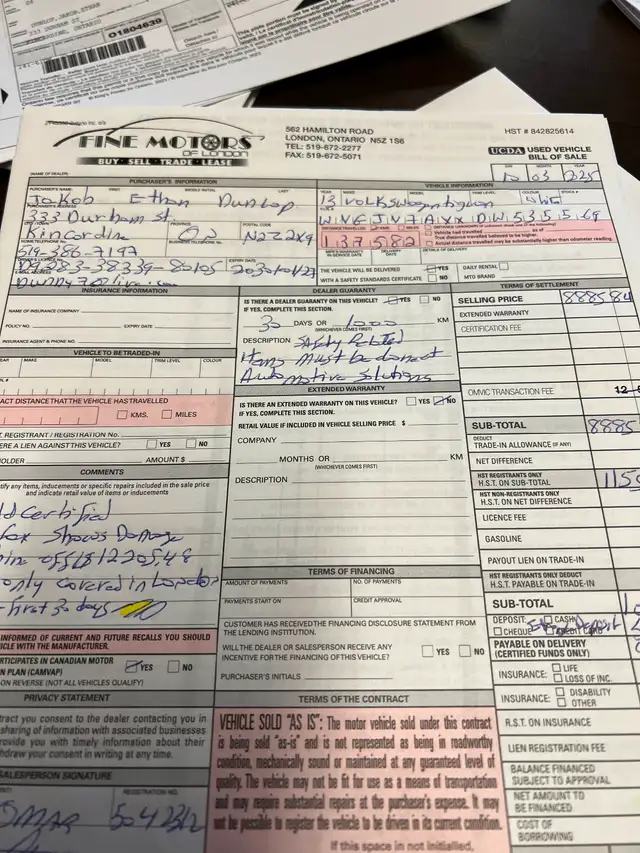 DUNLOP, JAKOB ETHAN
333 DURHAM ST
O1804639
FINE MOTORS
OF LONDON
BUY · SELL · TRADE · LEASE
562 HAMILTON ROAD
LONDON, ONTARIO N5Z 1S6
TEL: 519-672-2277
FAX: 519-672-5071
HST # 842825614
UCDA USED VEHICLE
BILL OF SALE
(NAME OF DEALER)
DAY MONTH YEAR
10 03 225
PURCHASER'S INFORMATION
VEHICLE INFORMATION
PURCHASER'S NAME FIRST MIDDLE INITIAL LAST
Jakob Ethan Dunlop
YEAR MAKE MODEL TRIM LEVEL COLOUR STOCK #
13 Volkswagen tiguan
PURCHASER'S ADDRESS
333 Durham St.
CITY PROVINCE POSTAL CODE
Kincardine On N2Z2X9
HOME TELEPHONE NO. BUSINESS TELEPHONE NO.
519-386-7197
DISTANCE TRAVELLED KMS MILES
137582
Vehicle had travelled
True distance travelled believed to be higher.
Actual distance travelled may be substantially higher than odometer reading.
EXPIRY DATE
E-MAIL ADDRESS
DELIVERY DATE
DETAILS OF DELIVERY
THE VEHICLE WILL BE DELIVERED YES DAILY RENTAL
WITH A SAFETY STANDARDS CERTIFICATE NO MTO BRAND
INSURANCE INFORMATION
DEALER GUARANTY
TERMS OF SETTLEMENT
NAME OF INSURANCE COMPANY
POLICY NO. EXPIRY DATE
INSURANCE AGENT & PHONE NO.
IS THERE A DEALER GUARANTY ON THIS VEHICLE? YES NO
IF YES, COMPLETE THIS SECTION.
30 DAYS OR 1000 KM
(WHICHEVER COMES FIRST)
DESCRIPTION Safety Related
items Must be done at
Automotive Solutions
SELLING PRICE 8885 84
EXTENDED WARRANTY
CERTIFICATION FEE
OMVIC TRANSACTION FEE 12
SUB-TOTAL 8885
VEHICLE TO BE TRADED-IN
YEAR MAKE MODEL TRIM LEVEL COLOUR
ACT DISTANCE THAT THE VEHICLE HAS TRAVELLED
KMS. MILES
T. REGISTRANT / REGISTRATION No.
ERE A LIEN AGAINST THIS VEHICLE? YES NO
HOLDER AMOUNT $
EXTENDED WARRANTY
IS THERE AN EXTENDED WARRANTY ON THIS VEHICLE? YES NO
IF YES, COMPLETE THIS SECTION.
RETAIL VALUE IF INCLUDED IN VEHICLE SELLING PRICE $
COMPANY
MONTHS OR KM
(WHICHEVER COMES FIRST)
DESCRIPTION
DEDUCT
TRADE-IN ALLOWANCE (IF ANY)
NET DIFFERENCE
HST REGISTRANTS ONLY
H.S.T. ON SUB-TOTAL 115
HST NON-REGISTRANTS ONLY
H.S.T. ON NET DIFFERENCE
LICENCE FEE
GASOLINE
PAYOUT LIEN ON TRADE-IN
HST REGISTRANTS ONLY DEDUCT
H.S.T. PAYABLE ON TRADE-IN
SUB-TOTAL
DEPOSIT: CASH
CHEQUE CREDIT CARD
PAYABLE ON DELIVERY
(CERTIFIED FUNDS ONLY)
INSURANCE: LIFE
LOSS OF INC.
INSURANCE: DISABILITY
OTHER
R.S.T. ON INSURANCE
LIEN REGISTRATION FEE
BALANCE FINANCED
SUBJECT TO APPROVAL
NET AMOUNT TO
BE FINANCED
COST OF
BORROWING
COMMENTS
tify any items, inducements or specific repairs included in the sale price
and indicate retail value of items or inducements
ld Certified
fax Shows Damage
only covered in London
first 30 days
INFORMED OF CURRENT AND FUTURE RECALLS YOU SHOULD
ICLE WITH THE MANUFACTURER.
RTICIPATES IN CANADIAN MOTOR
N PLAN (CAMVAP) YES NO
ON REVERSE (NOT ALL VEHICLES QUALIFY)
TERMS OF FINANCING
AMOUNT OF PAYMENTS NO. OF PAYMENTS
PAYMENTS START ON CREDIT APPROVAL
CUSTOMER HAS RECEIVED THE FINANCING DISCLOSURE STATEMENT FROM
THE LENDING INSTITUTION.
WILL THE DEALER OR SALESPERSON RECEIVE ANY
INCENTIVE FOR THE FINANCING OF THIS VEHICLE? YES NO
PURCHASER'S INITIALS
PRIVACY STATEMENT
tract you consent to the dealer contacting you in
sharing of information with associated businesses
provide you with timely information about their
hdraw your consent in writing at any time.
SALESPERSON SIGNATURE
REGISTRATION NO.
OMAR
TERMS OF THE CONTRACT
VEHICLE SOLD "AS IS": The motor vehicle sold under this contract
is being sold "as-is" and is not represented as being in roadworthy
condition, mechanically sound or maintained at any guaranteed level of
quality. The vehicle may not be fit for use as a means of transportation
and may require substantial repairs at the purchaser's expense. It may
not be possible to register the vehicle to be driven in its current condition.
If this space in not initialled,